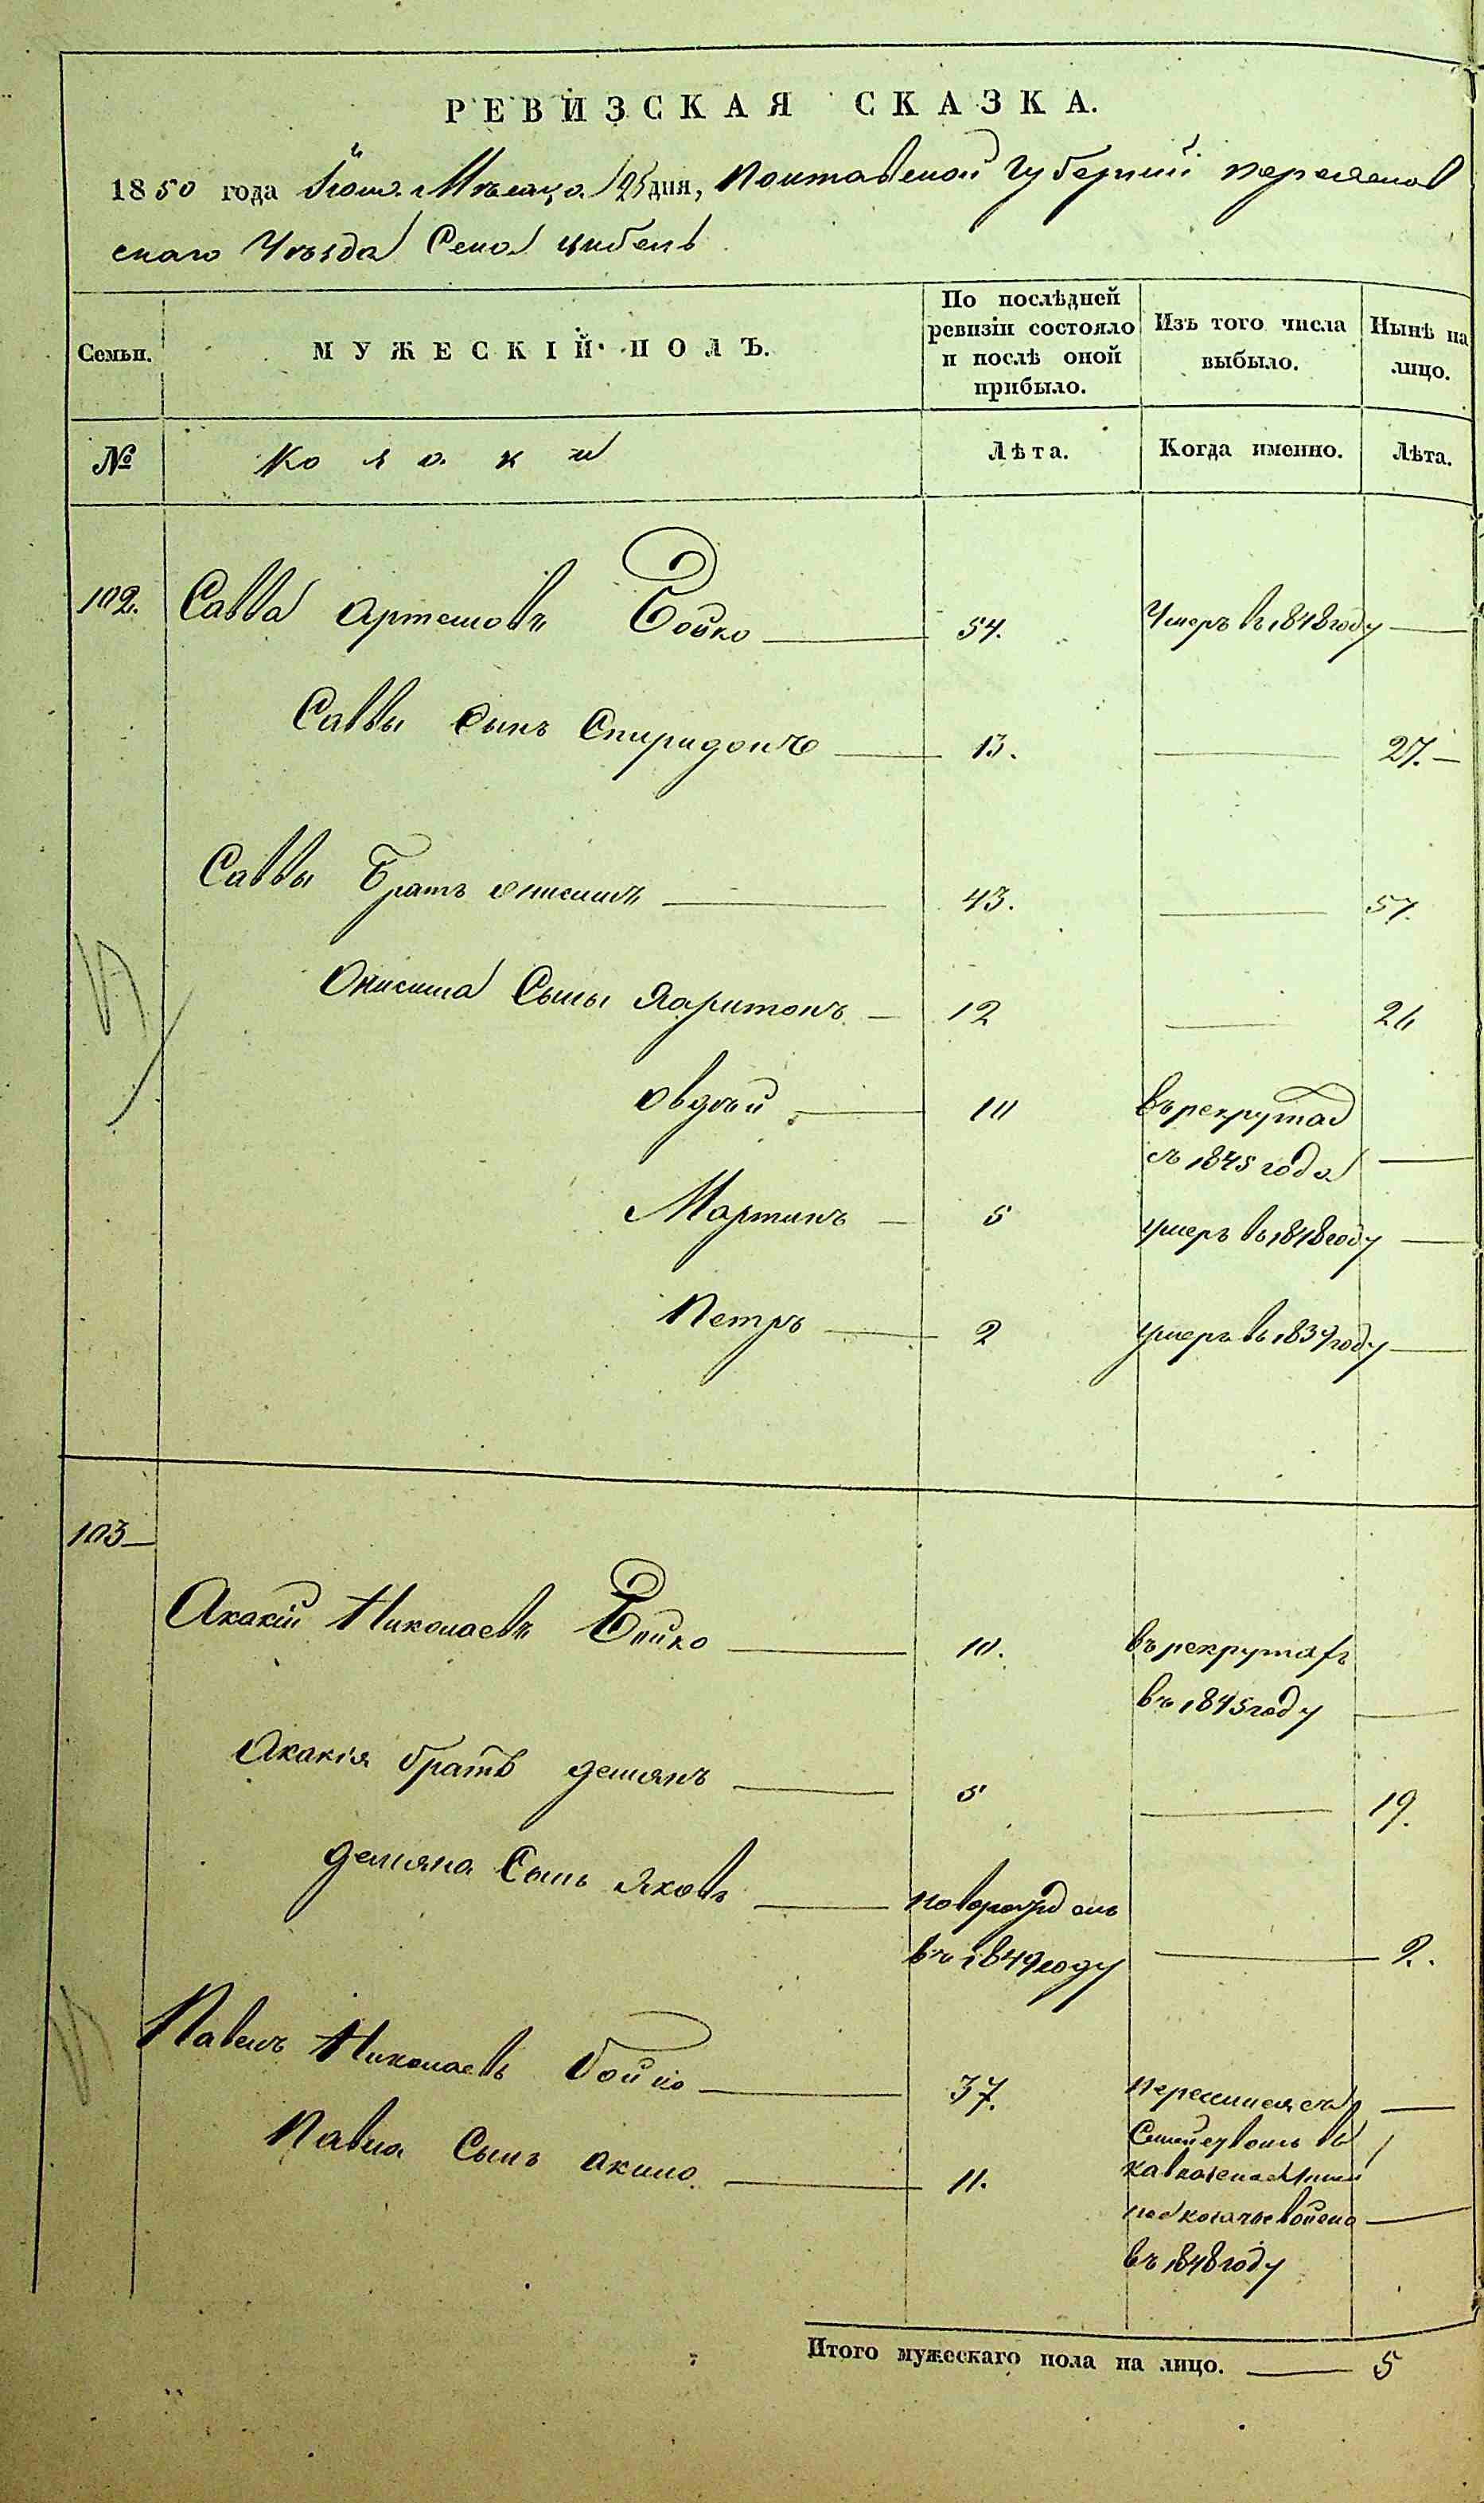 РЕВИЗСКАЯ СКАЗКА.
1850 года Іюля Мѣсяца 25 дня, Полтавской Губерніи Переяслов
скаго Уѣзда Села Цибель
Семьи.
МУЖЕСКІЙ ПОЛЪ.
По послѣдней ревизіи состояло и послѣ оной прибыло.
Изъ того числа выбыло.
Нынѣ на лицо.
№
Козаки
Лѣта.
Когда именно.
Лѣта.
102. Савва Артемовъ Бойко 54. Умеръ въ 1848 году
Саввы Сынъ Спиридонъ 13. 27.
Саввы Братъ Онисимъ 43. 57.
Онисима Сыны Харитонъ 12 26
Овдѣй 10 въ рекрутах
съ 1845 года
Мартинъ 5 умеръ въ 1848 году
Петръ 2 умеръ въ 1837 году
103
Акакій Николаевъ Бойко 10. въ рекрутахъ
въ 1845 году
Акакія братъ Демянъ 5 19.
Демяна Сынъ Яковъ новорожденъ
въ 1849 году 2.
Павелъ Николаевъ Бойко 37.
Семействомъ въ
Павла Сынъ Акимъ 11.
въ 1848 году
Итого мужескаго пола на лицо. 5